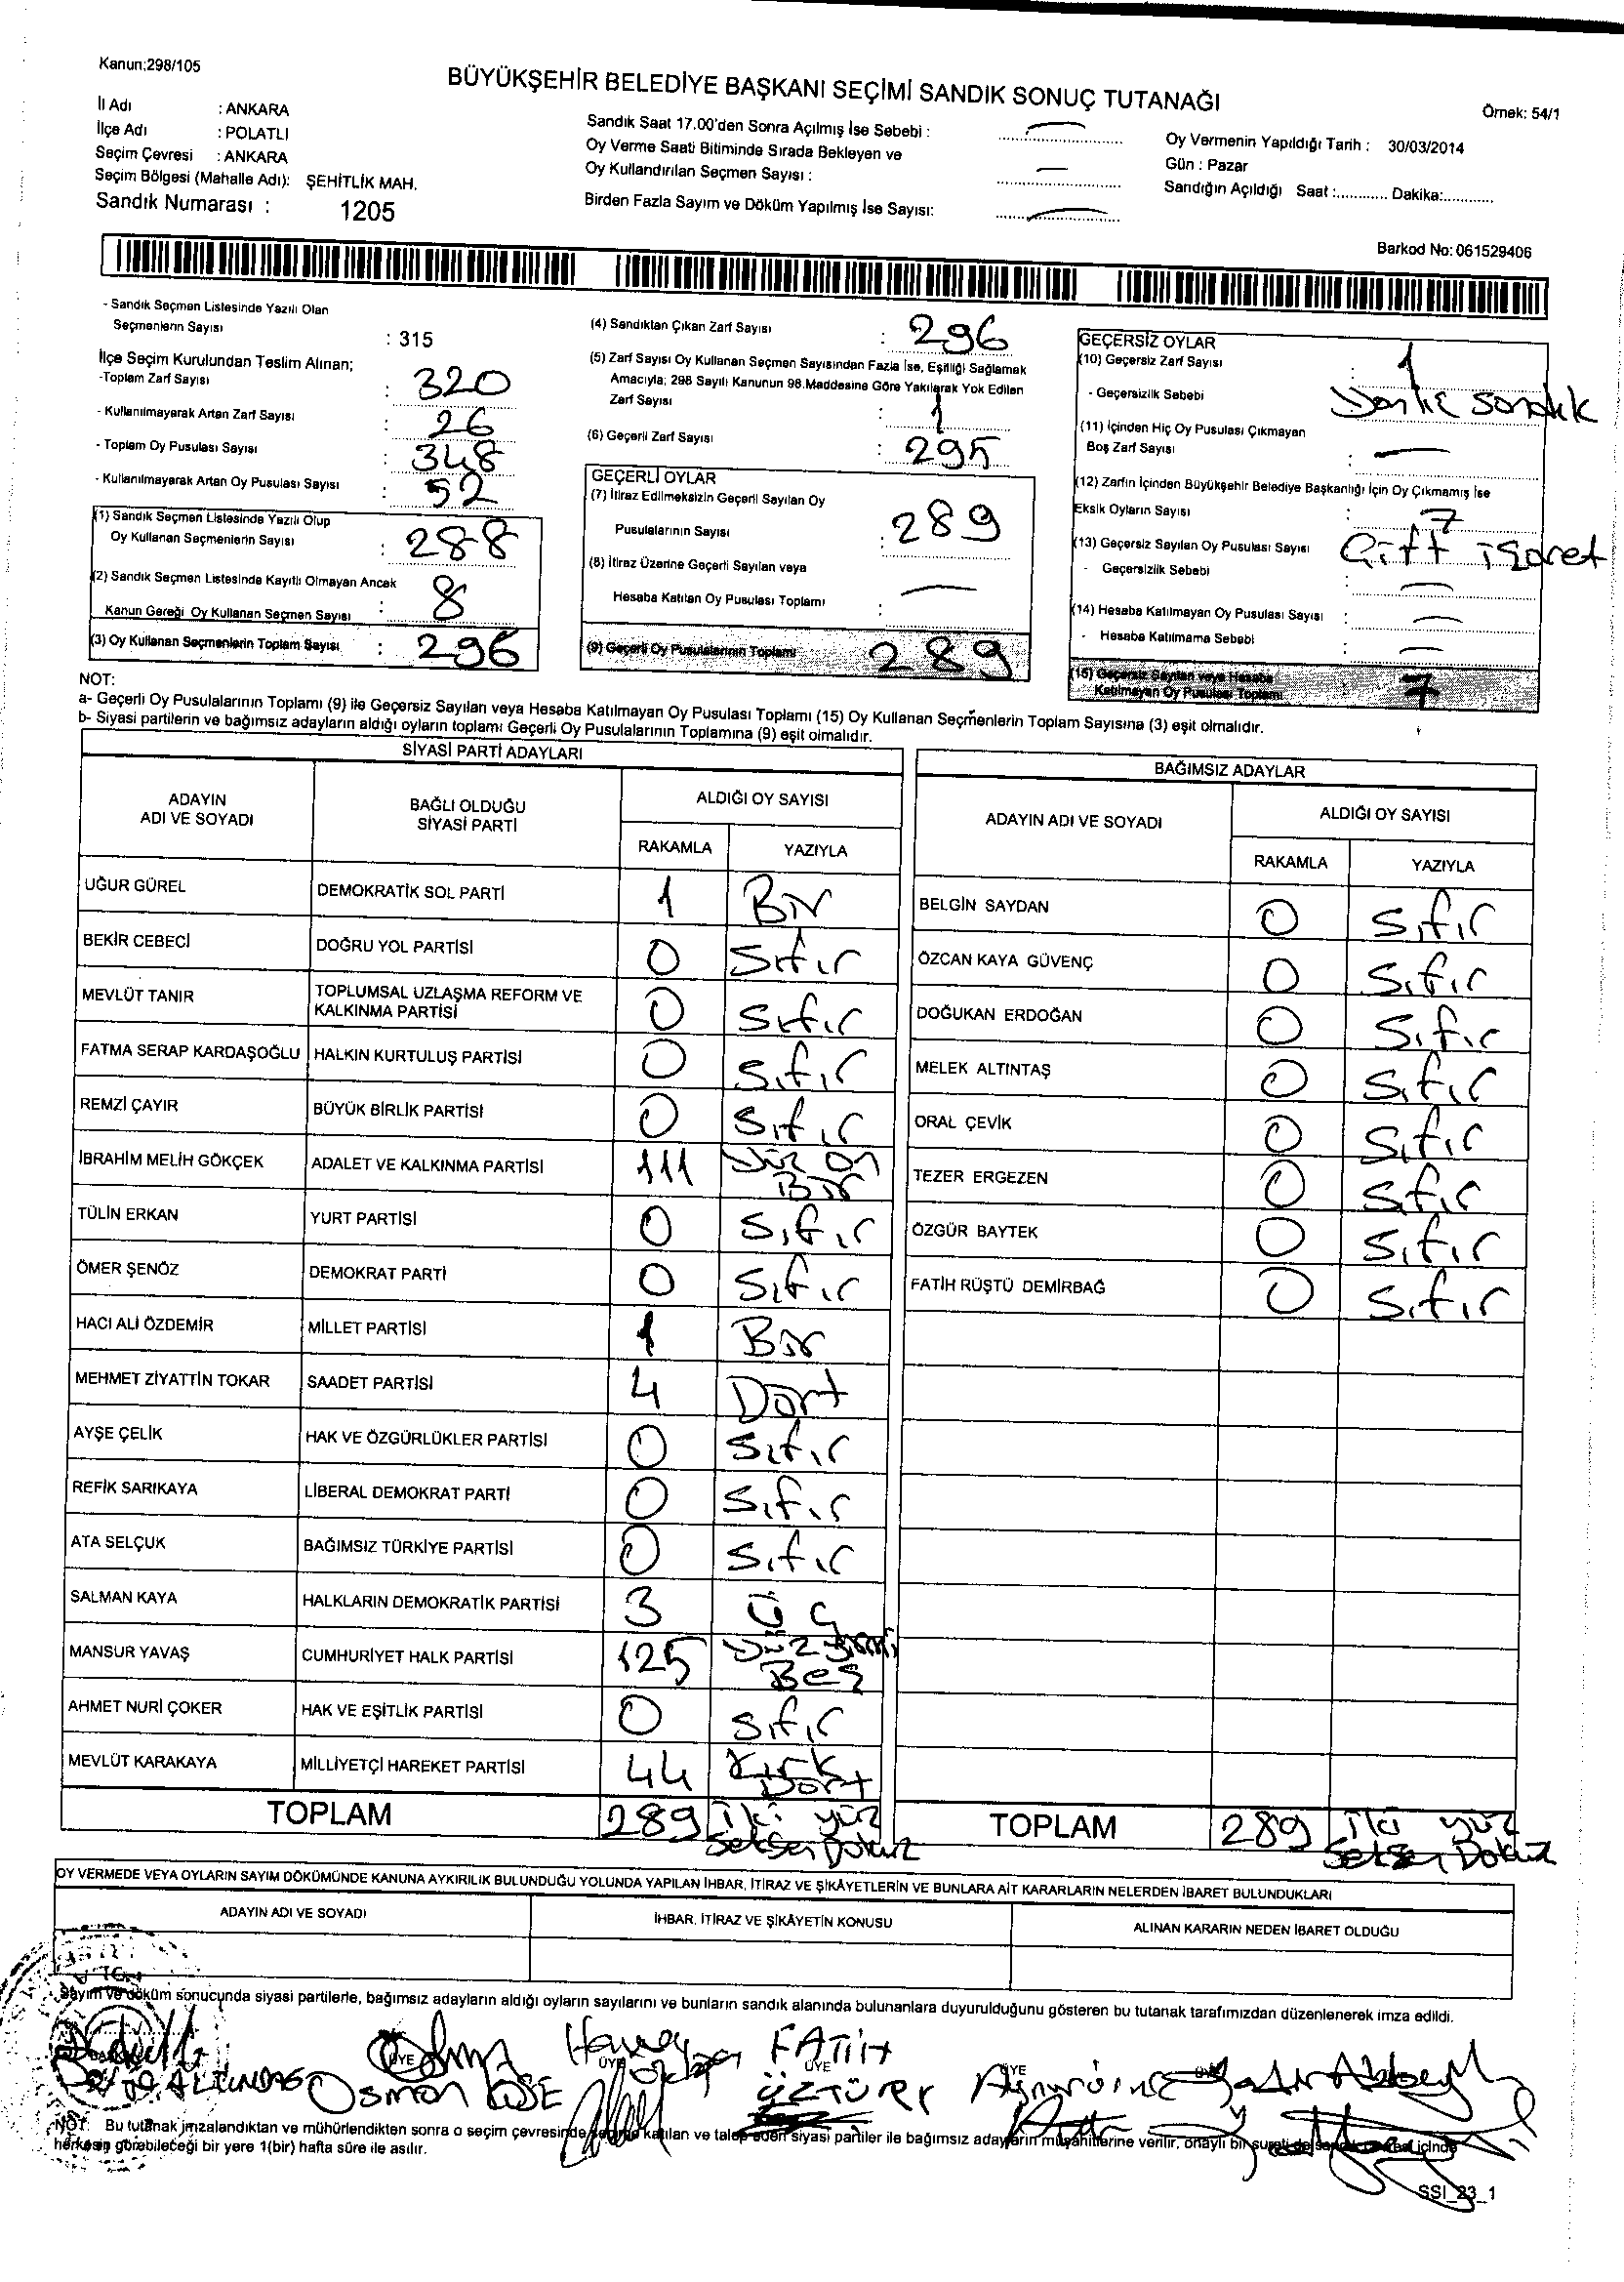 Kanun:298/105
BÜYÜKŞEHİR BELEDİYE BAŞKANI SEÇİMİ SANDIK SONUÇ TUTANAĞI
Örnek: 54/1
İl Adı : ANKARA
İlçe Adı : POLATLI
Seçim Çevresi : ANKARA
Seçim Bölgesi (Mahalle Adı): ŞEHİTLİK MAH.
Sandık Numarası : 1205
Sandık Saat 17.00'den Sonra Açılmış İse Sebebi :
Oy Verme Saati Bitiminde Sırada Bekleyen ve
Oy Kullandırılan Seçmen Sayısı :
Birden Fazla Sayım ve Döküm Yapılmış İse Sayısı:
Oy Vermenin Yapıldığı Tarih : 30/03/2014
Gün : Pazar
Sandığın Açıldığı Saat :............ Dakika:............
Barkod No: 061529406
- Sandık Seçmen Listesinde Yazılı Olan
Seçmenlerin Sayısı : 315
İlçe Seçim Kurulundan Teslim Alınan;
-Toplam Zarf Sayısı : 320
- Kullanılmayarak Artan Zarf Sayısı : 26
- Toplam Oy Pusulası Sayısı : 348
- Kullanılmayarak Artan Oy Pusulası Sayısı : 52
(1) Sandık Seçmen Listesinde Yazılı Olup
Oy Kullanan Seçmenlerin Sayısı : 288
(2) Sandık Seçmen Listesinde Kayıtlı Olmayan Ancak
Kanun Gereği Oy Kullanan Seçmen Sayısı : 8
(3) Oy Kullanan Seçmenlerin Toplam Sayısı : 296
(4) Sandıktan Çıkan Zarf Sayısı : 296
(5) Zarf Sayısı Oy Kullanan Seçmen Sayısından Fazla İse, Eşitliği Sağlamak
Amacıyla; 298 Sayılı Kanunun 98.Maddesine Göre Yakılarak Yok Edilen
Zarf Sayısı : 1
(6) Geçerli Zarf Sayısı : 295
GEÇERLİ OYLAR
(7) İtiraz Edilmeksizin Geçerli Sayılan Oy
Pusulalarının Sayısı : 289
(8) İtiraz Üzerine Geçerli Sayılan veya
Hesaba Katılan Oy Pusulası Toplamı :
(9) Geçerli Oy Pusulalarının Toplamı 289
GEÇERSİZ OYLAR
(10) Geçersiz Zarf Sayısı : 1
- Geçersizlik Sebebi sandık
(11) İçinden Hiç Oy Pusulası Çıkmayan
Boş Zarf Sayısı :
(12) Zarfın İçinden Büyükşehir Belediye Başkanlığı İçin Oy Çıkmamış İse
Eksik Oyların Sayısı : 7
(13) Geçersiz Sayılan Oy Pusulası Sayısı Çift işaret
- Geçersizlik Sebebi :
(14) Hesaba Katılmayan Oy Pusulası Sayısı :
- Hesaba Katılmama Sebebi :
(15) Geçersiz Sayılan veya Hesaba
Katılmayan Oy Pusulası Toplamı 7
NOT:
a- Geçerli Oy Pusulalarının Toplamı (9) ile Geçersiz Sayılan veya Hesaba Katılmayan Oy Pusulası Toplamı (15) Oy Kullanan Seçmenlerin Toplam Sayısına (3) eşit olmalıdır.
b- Siyasi partilerin ve bağımsız adayların aldığı oyların toplamı Geçerli Oy Pusulalarının Toplamına (9) eşit olmalıdır.
SİYASİ PARTİ ADAYLARI
ADAYIN ADI VE SOYADI BAĞLI OLDUĞU SİYASİ PARTİ ALDIĞI OY SAYISI
RAKAMLA YAZIYLA
UĞUR GÜREL DEMOKRATİK SOL PARTİ 1 Bir
BEKİR CEBECİ DOĞRU YOL PARTİSİ 0 Sıfır
MEVLÜT TANIR TOPLUMSAL UZLAŞMA REFORM VE KALKINMA PARTİSİ 0 Sıfır
FATMA SERAP KARDAŞOĞLU HALKIN KURTULUŞ PARTİSİ 0 Sıfır
REMZİ ÇAYIR BÜYÜK BİRLİK PARTİSİ 0 Sıfır
İBRAHİM MELİH GÖKÇEK ADALET VE KALKINMA PARTİSİ 111 Yüz on Bir
TÜLİN ERKAN YURT PARTİSİ 0 Sıfır
ÖMER ŞENÖZ DEMOKRAT PARTİ 0 Sıfır
HACI ALİ ÖZDEMİR MİLLET PARTİSİ 1 Bir
MEHMET ZİYATTİN TOKAR SAADET PARTİSİ 4 Dört
AYŞE ÇELİK HAK VE ÖZGÜRLÜKLER PARTİSİ 0 Sıfır
REFİK SARIKAYA LİBERAL DEMOKRAT PARTİ 0 Sıfır
ATA SELÇUK BAĞIMSIZ TÜRKİYE PARTİSİ 0 Sıfır
SALMAN KAYA HALKLARIN DEMOKRATİK PARTİSİ 3 Üç
MANSUR YAVAŞ CUMHURİYET HALK PARTİSİ 125 Yüz yirmi Beş
AHMET NURİ ÇOKER HAK VE EŞİTLİK PARTİSİ 0 Sıfır
MEVLÜT KARAKAYA MİLLİYETÇİ HAREKET PARTİSİ 44 Kırk Dört
TOPLAM 289 İki yüz Seksen Dokuz
BAĞIMSIZ ADAYLAR
ADAYIN ADI VE SOYADI ALDIĞI OY SAYISI
RAKAMLA YAZIYLA
BELGİN SAYDAN 0 Sıfır
ÖZCAN KAYA GÜVENÇ 0 Sıfır
DOĞUKAN ERDOĞAN 0 Sıfır
MELEK ALTINTAŞ 0 Sıfır
ORAL ÇEVİK 0 Sıfır
TEZER ERGEZEN 0 Sıfır
ÖZGÜR BAYTEK 0 Sıfır
FATİH RÜŞTÜ DEMİRBAĞ 0 Sıfır
TOPLAM 289 İki yüz Seksen Dokuz
OY VERMEDE VEYA OYLARIN SAYIM DÖKÜMÜNDE KANUNA AYKIRILIK BULUNDUĞU YOLUNDA YAPILAN İHBAR, İTİRAZ VE ŞİKÂYETLERİN VE BUNLARA AİT KARARLARIN NELERDEN İBARET BULUNDUKLARI
ADAYIN ADI VE SOYADI İHBAR, İTİRAZ VE ŞİKÂYETİN KONUSU ALINAN KARARIN NEDEN İBARET OLDUĞU
Sayım ve döküm sonucunda siyasi partilerle, bağımsız adayların aldığı oyların sayılarını ve bunların sandık alanında bulunanlara duyurulduğunu gösteren bu tutanak tarafımızdan düzenlenerek imza edildi.
ÜYE ÜYE ÜYE ÜYE
ALTUNDAĞ Osman KÖSE FATİH ÖZTÜRK
NOT: Bu tutanak imzalandıktan ve mühürlendikten sonra o seçim çevresinde seçime katılan ve talep eden siyasi partiler ile bağımsız adayların müşahitlerine verilir, onaylı bir sureti de sandık çevresi içinde
herkesin görebileceği bir yere 1(bir) hafta süre ile asılır.
SSI_23_1